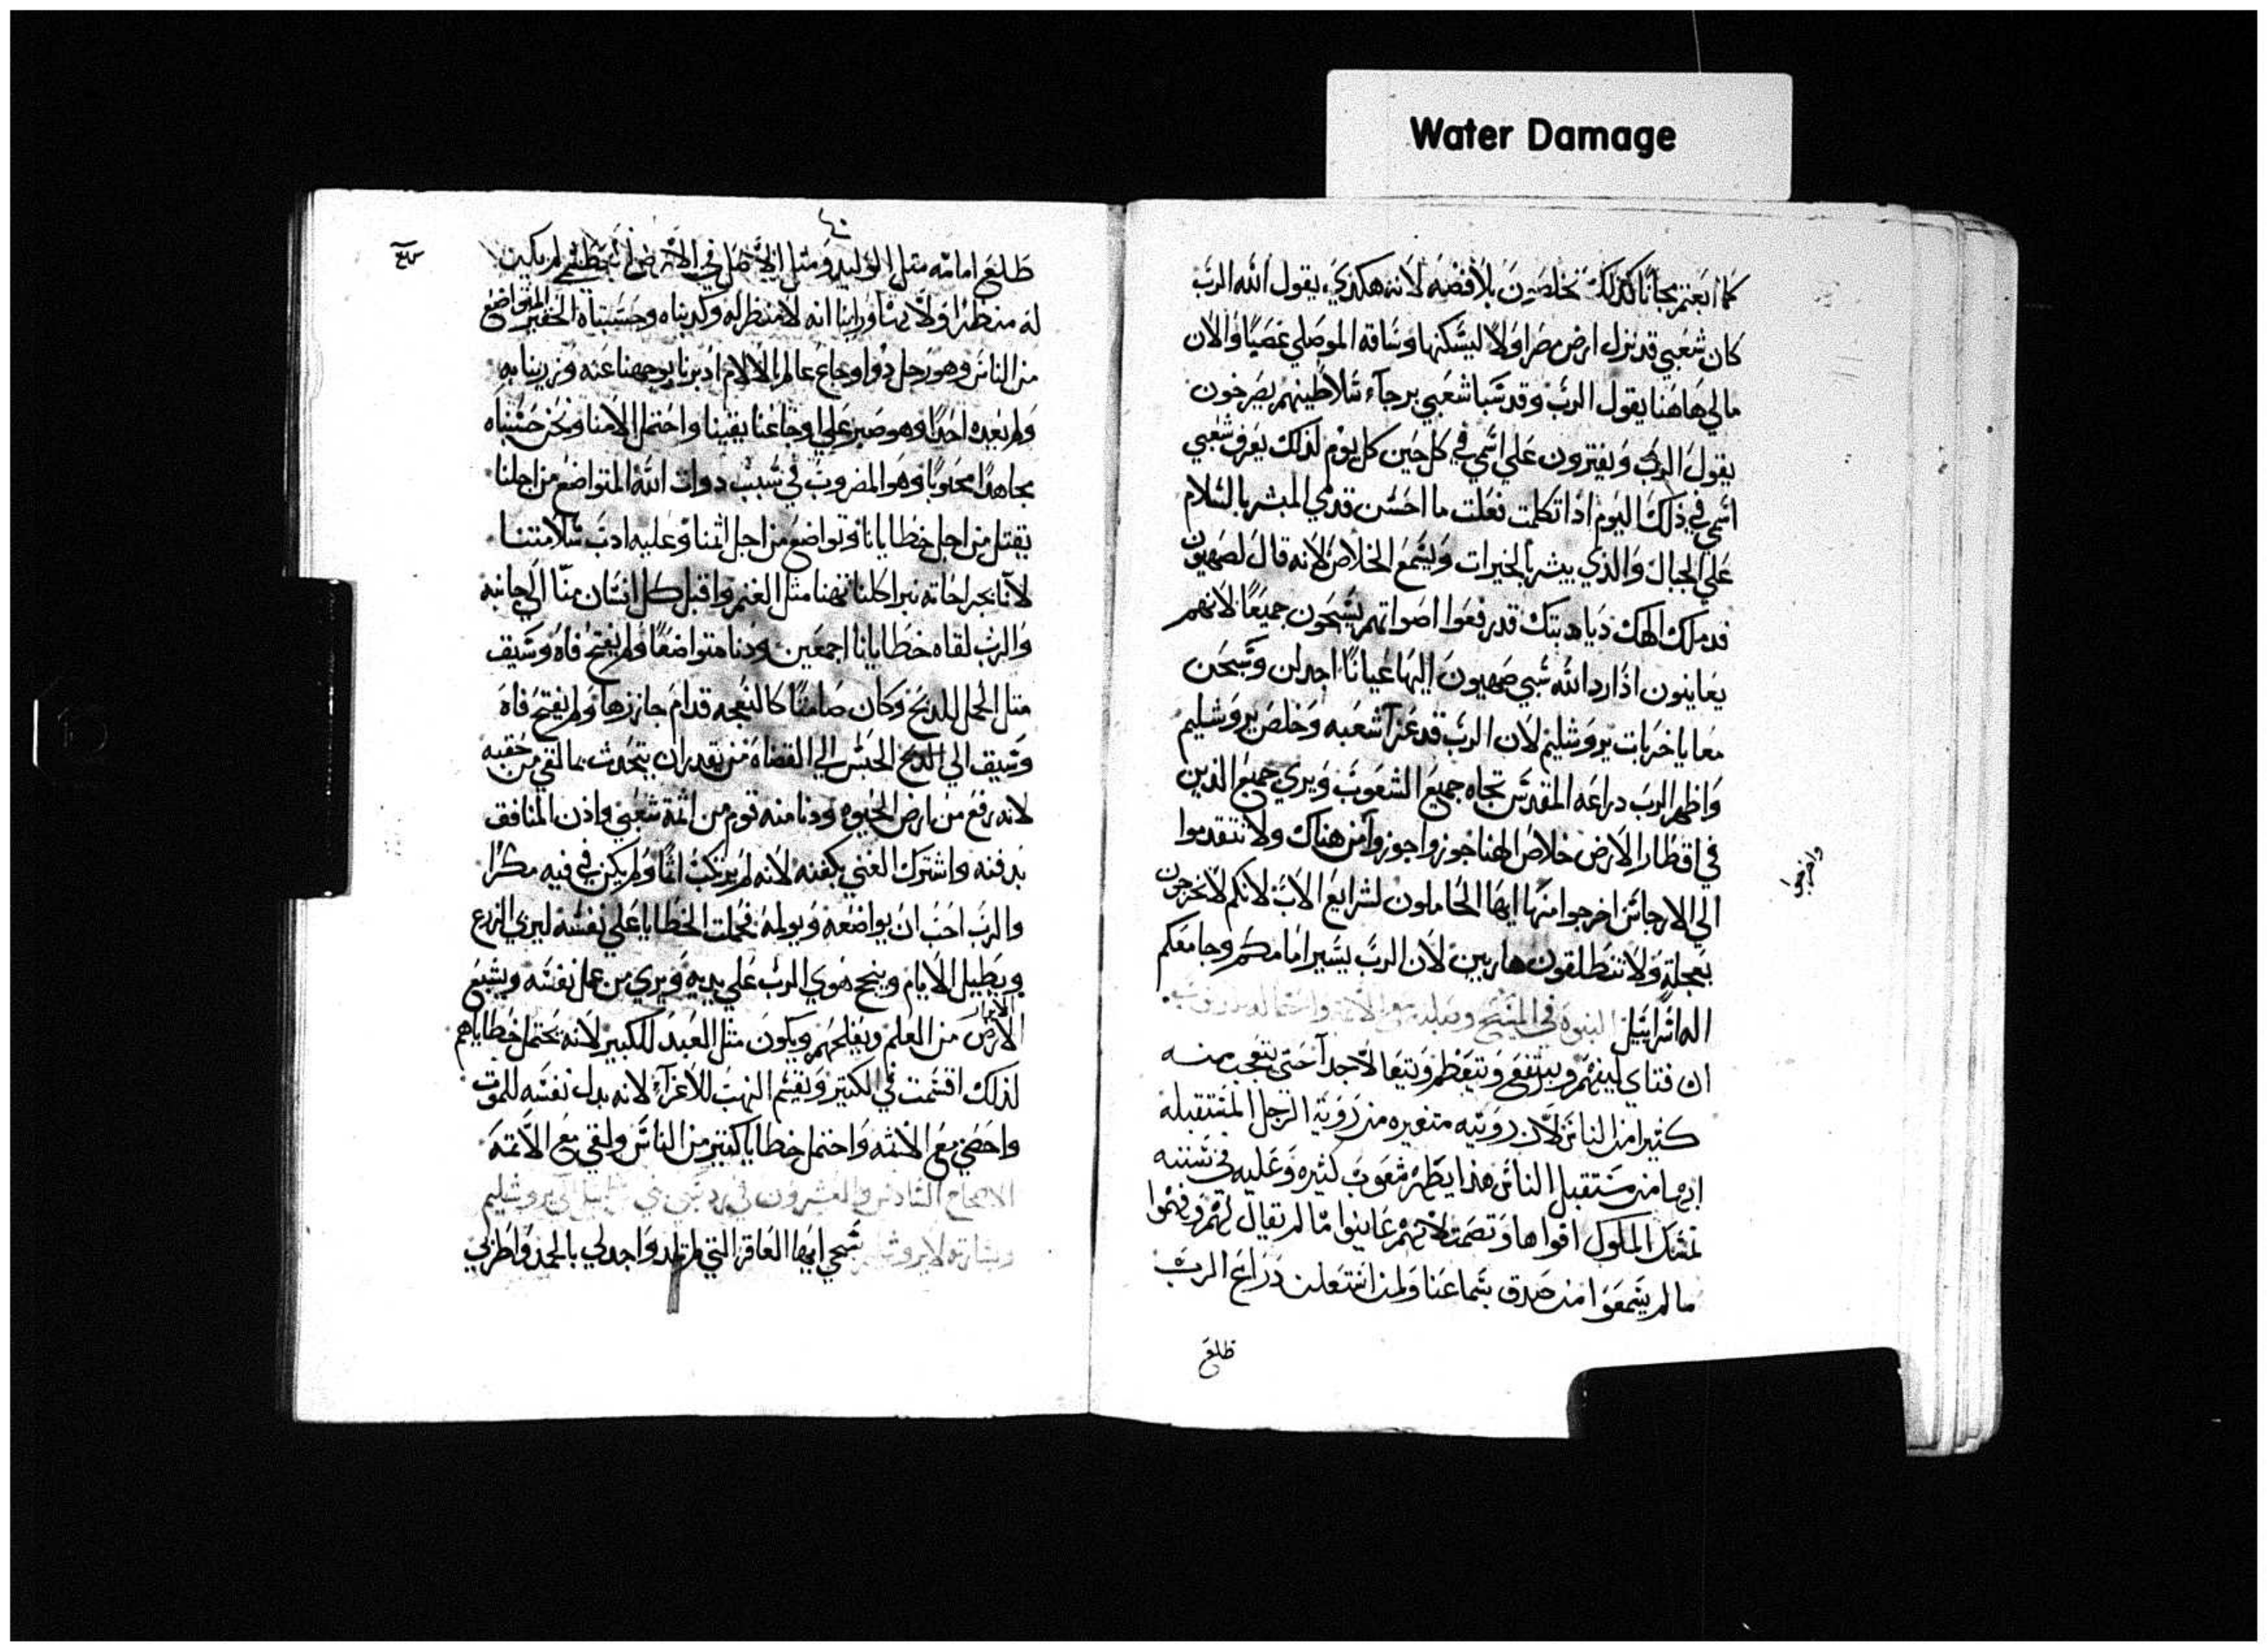 Water Damage
كما ابعتم مجانًا كذلك تخلصون بلا فضه لانه هكذي يقول الله الرب
كان شعبي قد نزل ارض مصر اولا ليسكنها وساقه الموصلي غصبًا والان
مالي هاهنا يقول الرب وقد سبا شعبي برجآء سلاطينهم يصرخون
يقول الرب ويفترون علي اسمي في كل حين كل يوم لذلك يعرف شعبي
اسمي في ذلك اليوم اذا تكلمت فعلت ما احسن قدمي المبشر بالسلام
علي الجبال والذي يبشر بالخيرات ويسمع الخلاص لانه قال لصهيون
قد ملك الهك ديادبتك قد رفعوا اصواتهم يسبحون جميعًا لانهم
يعاينون اذا رد الله سبي صهيون اليها عيانًا اجدلن وسبحن
معا يا خربات يروشليم لان الرب قد عزا شعبه وخلص يروشليم
واظهر الرب دراعه المقدس تجاه جميع الشعوب ويري جميع الذين
في اقطار الارض خلاص الهنا جوزوا جوزوا من هناك ولا تتقدموا
واخرجوا
الي الارجاس اخرجوا منها ايها الحاملون لشرايع الاب لانكم لا تخرجون
بعجلة ولا تنطلقون هاربين لان الرب يسير امامكم وجامعكم
اله اسراييل النبوه في المسيح
ان فتاي ليفهم ويرتفع ويتعظم ويتعالا جدآ حتي يتعجب منه
كثيرا من الناس لان رويته متغيره من روية الرجل المستقبله
ابها من مستقبل الناس هذا يطهر شعوب كثيره وعليه في سننه
تمسك الملوك افواها وتصمت لانهم عاينوا ما لم يقال لهم وفهموا
ما لم يسمعوا من صدق بسماعنا ولمن استعلن دراع الرب
طلع
طلع امامه متل الوليد ومتل الاصل في الارض لم يكن
له منظرًا ولا بهآ ورايناه انه لا منظر له وكدبناه وحسبناه الحقير المتواضع
من الناس وهو رجل دو اوجاع عالم بالالام ادبرنا بوجهنا عنه وزرينا به
ولم نعيده احدًا وهو صبر علي اوجاعنا يقينا واحتمل الامنا ونحن حسبناه
مجاهدًا محبوبًا وهو المضروب في سبب دوات الله المتواضع من اجلنا
يقتل من اجل خطايانا وتواضع من اجل اثمنا وعليه ادب سلامتنا
لانا بجراحاته نبرا كلنا تهنا متل الغنم واقبل كل انسان منّا الي جانبه
والرب لقاه خطايانا اجمعين ودنا متواضعًا ولم يفتح فاه وسيق
متل الحمل للدبح وكان صامتًا كالنعجه قدام جازرها ولم يفتح فاه
وسيق الي الدبح الحبس الي القضاة من يقدر ان يتحدث بما لقي من حقبه
لانه رفع من ارض الحيوه ودنا منه قوم من اثمة شعبي واذن المنافق
بدفنه واشترك الغني بكفنه لانه لم يرتكب اثمًا ولم يكن في فيه مكرًا
والرب احب ان يواضعه ويولمه فحملت الخطايا علي نفسه ليري الزرع
ويطيل الايام وينجح هوي الرب علي يديه ويري من عمل نفسه ويشبع
الارض من العلم ويفلحهم ويكون متل العبد للكبير لانه يحتمل خطاياهم
لذلك اقسمت في الكتير ونقسم النهب للاعزآء لانه بدل نفسه للموت
واحصي مع الاثمه واحتمل خطايا كتير من الناس ولقي مع الاثمة
الاصحاح السادس والعشرون في رد سبي يروشليم
سبحي ايها العاقر التي لم تلد واجدلي بالحمد واطربي